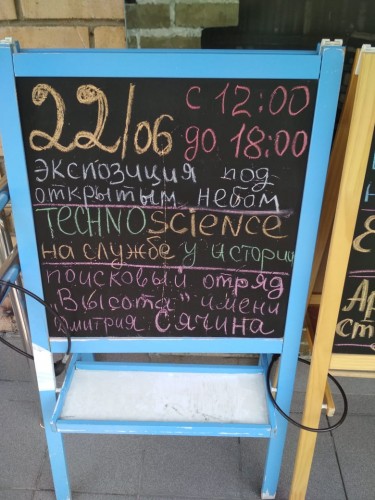 22/06 с 12:00
до 18:00
экспозиция под
открытым небом
TECHNOScience
на службе у истории
поисковый отряд
"Высота" имени
Дмитрия Сячина